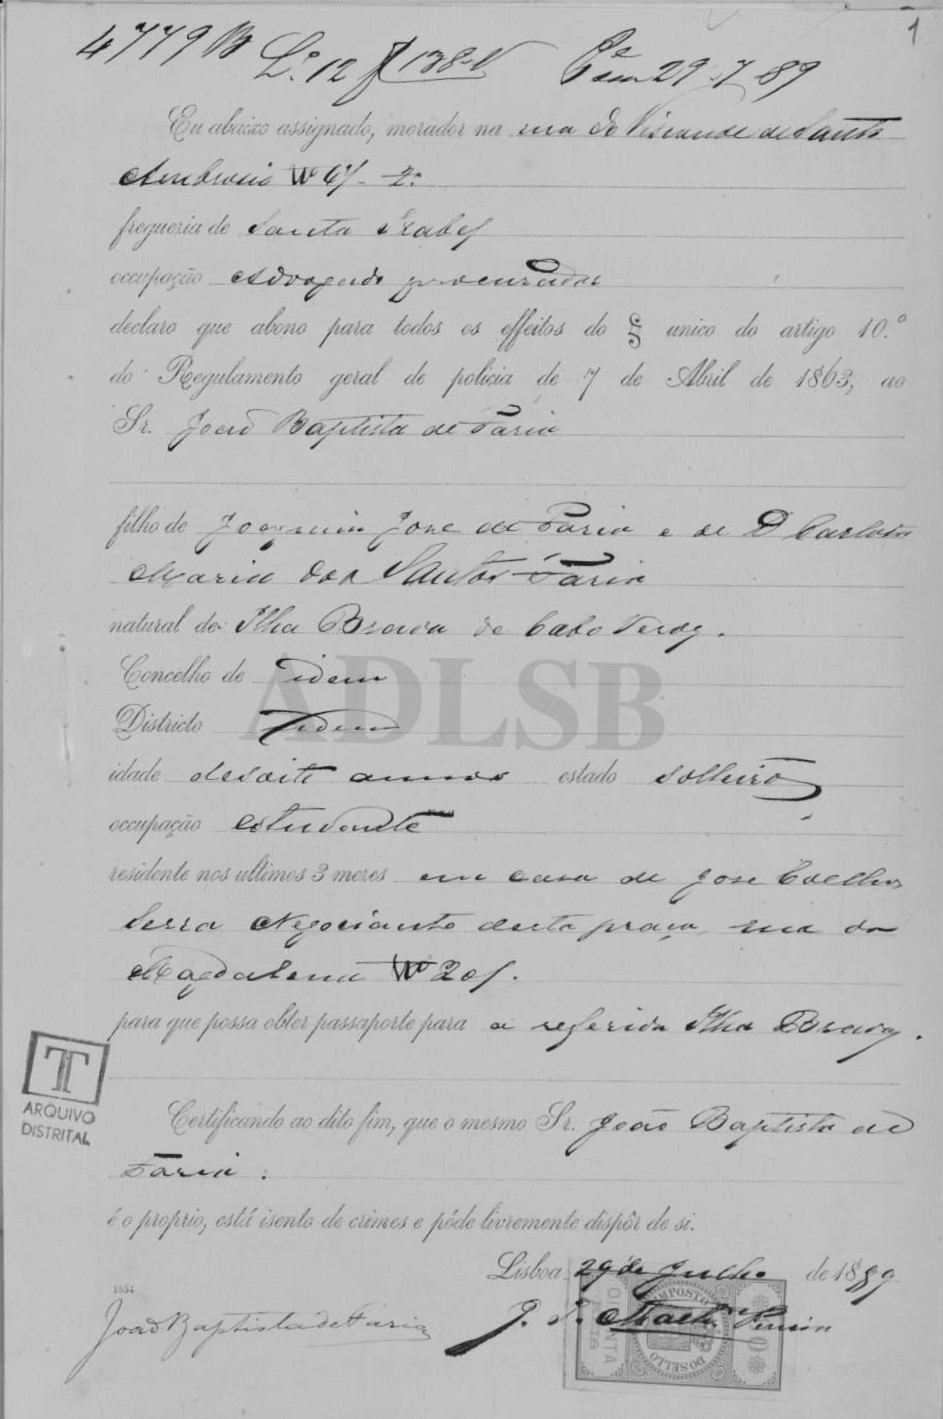 4779 B L.º 12 f 138 V P.e em 29-7-89
1
Eu abaixo assignado, morador na rua do Visconde de Santo
Ambrosio Nº 2º
freguezia de Santa Isabel
occupação Advogado procurador
declaro que abono para todos os effeitos do § unico do artigo 10.º
do Regulamento geral de policia de 7 de Abril de 1863, ao
Sr. João Baptista de Faria
filho de Joaquim José de Faria e de D Carlota
Maria dos Santos Faria
natural da Ilha Brava de Cabo Verde.
Concelho de Idem
Districto Idem
idade desoito annos estado solteiro
occupação estudante
residente nos ultimos 3 mezes em casa de José Coelho
Serra Negociante desta praça, rua da
Magdalena Nº 20
para que possa obter passaporte para a referida Ilha Brava.
Certificando ao dito fim, que o mesmo Sr. João Baptista de
Faria.
é o proprio, está isento de crimes e póde livremente dispôr de si.
Lisboa 29 de Julho de 1889
1354
João Baptista de Faria
IMPOSTO DO SELLO
ADLSB
T
ARQUIVO
DISTRITAL